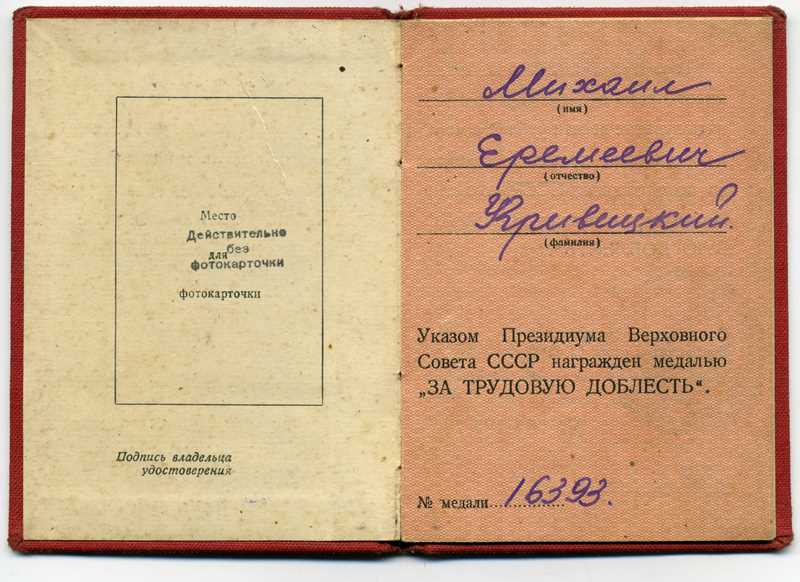 Место
Действительно
без
для
фотокарточки
фотокарточки
Подпись владельца
удостоверения
Михаил
(имя)
Еремеевич
(отчество)
Кривицкий.
(фамилия)
Указом Президиума Верховного
Совета СССР награжден медалью
„ЗА ТРУДОВУЮ ДОБЛЕСТЬ“.
№ медали 16393.